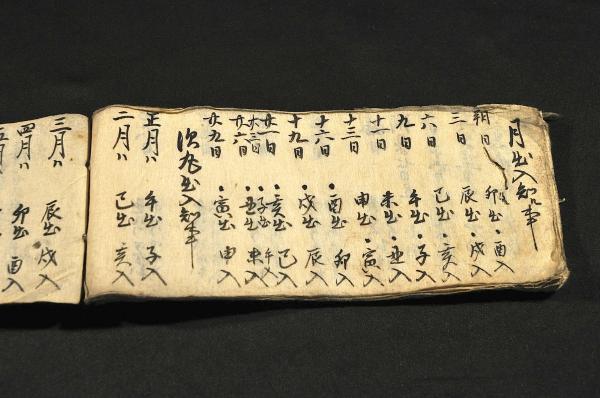 月出入知事
朔日 卯出・酉入
三日 辰出・戌入
六日 巳出・亥入
九日 午出・子入
十一日 未出・丑入
十三日 申出・寅入
十六日 ・酉出 卯入
十九日 ・戌出 辰入
廿一日 ・亥出 巳入
廿三日 ・子出 午入
廿六日 ・丑出 未入
廿九日 ・寅出 申入
出入知事
正月ハ 午出 子入
二月ハ 巳出 亥入
三月ハ 辰出 戌入
四月ハ 卯出 酉入
五月ハ